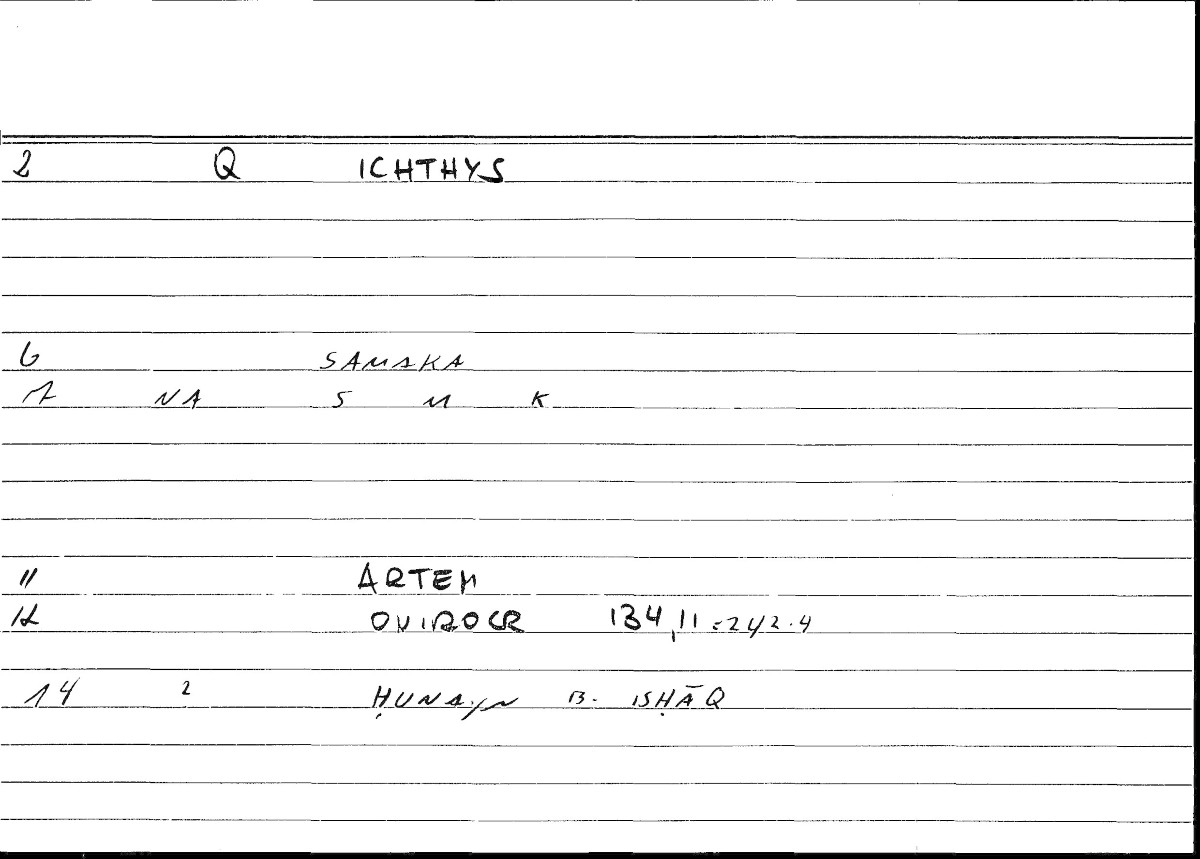 2 Q ICHTHYS
6 SAMAKA
7 NA S M K
11 ARTEM
12 ONIROCR 134,11 = 242.4
14 2 ḤUNAYN B. ISḤĀQ